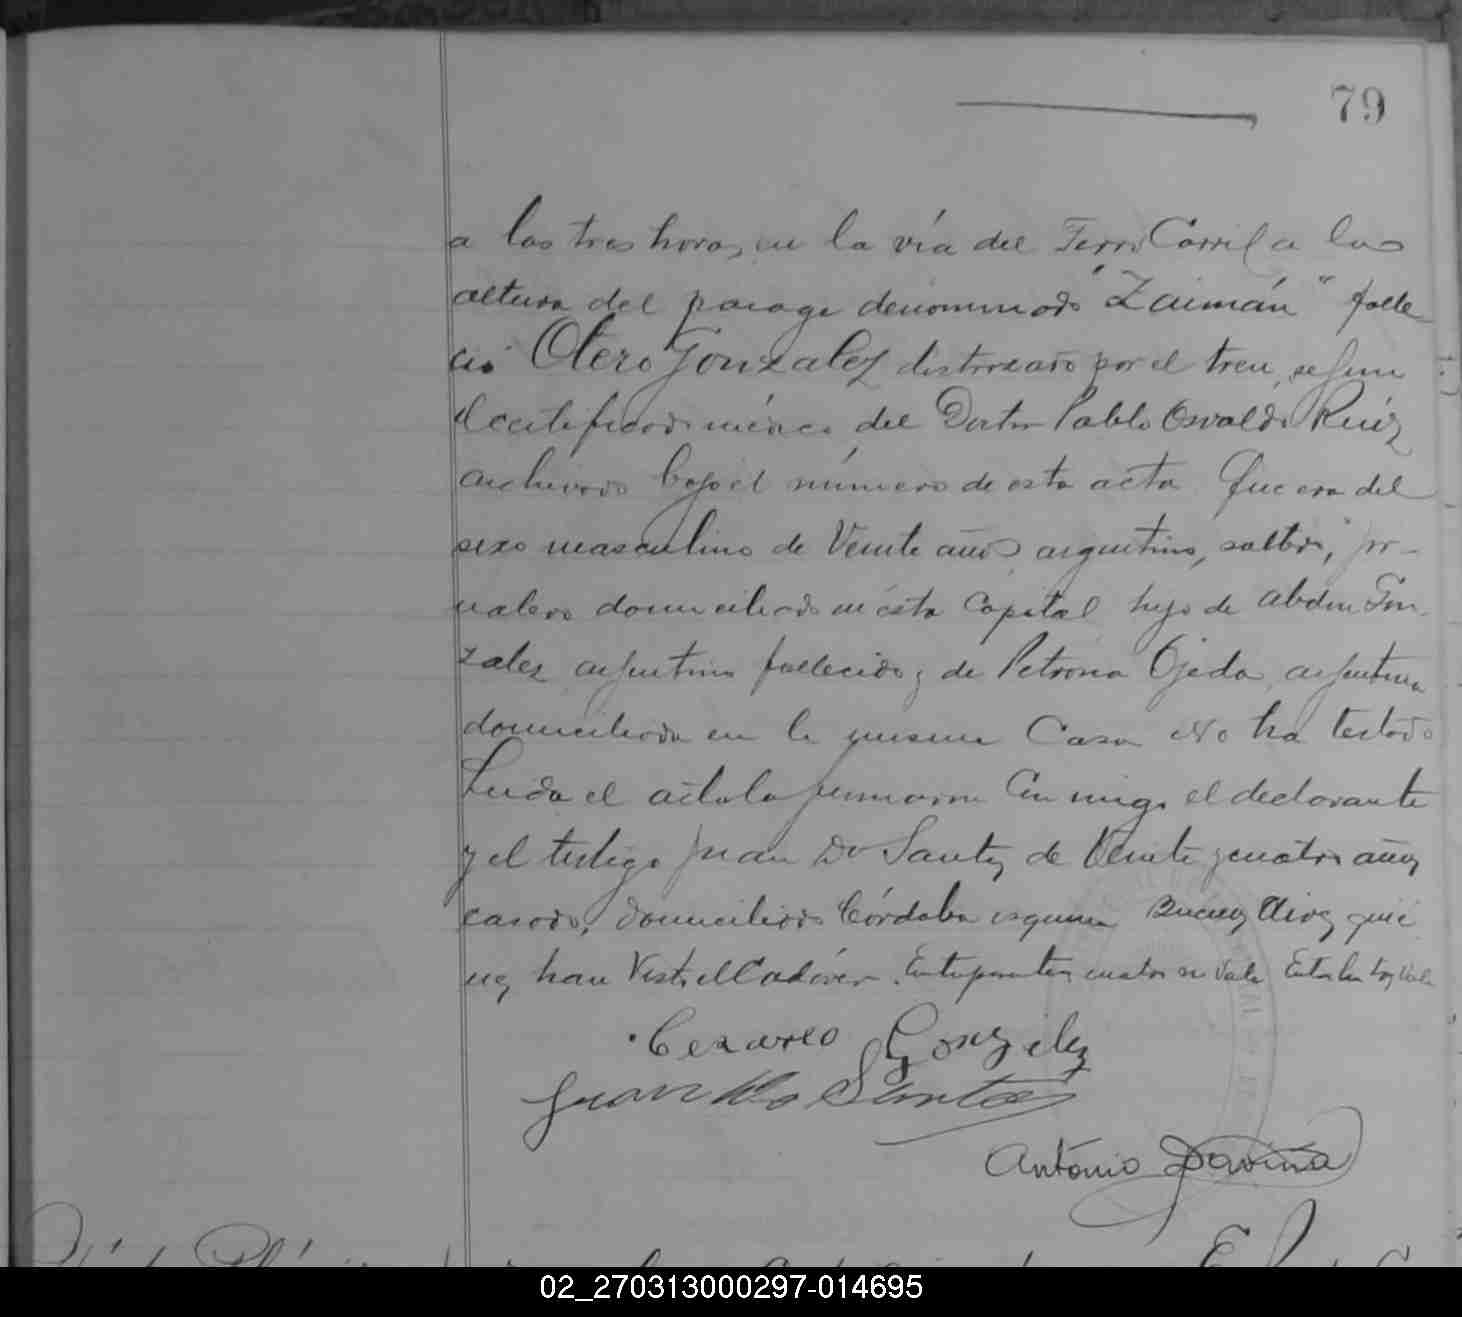 79
a las tres horas, en la vía del Ferro Carril a las
altura del parage denominado "Zaimán" falle
ció Otero Gonzalez destrozado por el tren, segun
el certificado médico del Doctor Pablo Osvaldo Ruíz
archivado bajo el número de esta acta. Que era del
sexo masculino de Veinte años, argentino, soltero, jor-
nalero domiciliado en ésta Capital hijo de Abdon Gon-
zalez argentino fallecido y de Petrona Ojeda, argentina
domiciliada en la misma Casa No ha testado
Leida el acta la firmaron Con migo el declarante
y el testigo Juan Do Santos de Veinte y cuatro años
casado, domiciliado Córdoba esquina Buenos Aires quié
nes han Visto el Cadáver. cuatro no Vale
Cezareo Gonzalez
Juan Do Santos
Antonio
02_270313000297-014695